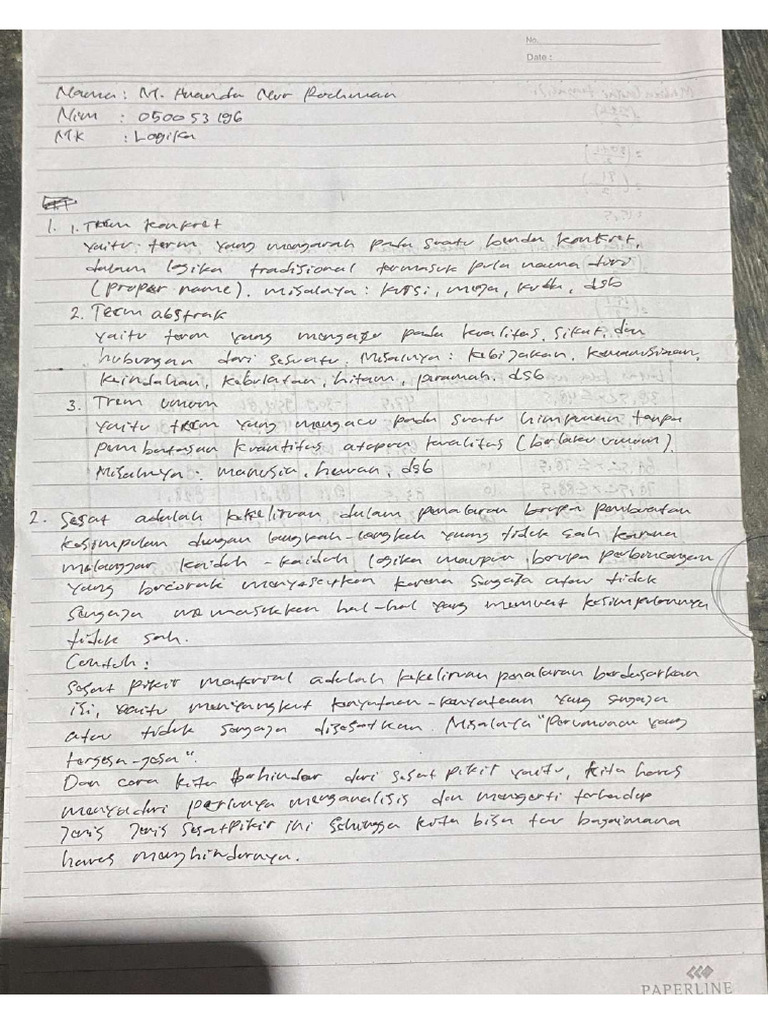 No.
Date :
Nama : M. Ananda Nur Rochman
Nim : 050053196
MK : Logika
1. 1. Trem konkret
yaitu term yang mengarah pada suatu benda konkret,
dalam logika tradisional termasuk pula nama diri
(proper name). misalnya : kursi, meja, kuda, dsb
2. Term abstrak
yaitu term yang mengacu pada kualitas, sifat, dan
hubungan dari sesuatu. Misalnya : kebijakan, kemanusiaan,
keindahan, kebulatan, hitam, peramah, dsb
3. Trem umum
yaitu trem yang mengacu pada suatu himpunan tanpa
pembatasan kuantitas atapun kualitas (berlaku umum).
Misalnya : manusia, hewan, dsb
2. Sesat adalah kekeliruan dalam penalaran berupa pembuatan
kesimpulan dengan langkah-langkah yang tidak sah karena
melanggar kaidah-kaidah logika maupun berupa perbincangan
yang bercorak menyesatkan karena sengaja atau tidak
sengaja memasukkan hal-hal yang memuat kesimpulannya
tidak sah.
Contoh :
Sesat pikir material adalah kekeliruan penalaran berdasarkan
isi, yaitu menyangkut kenyataan-kenyataan yang sengaja
atau tidak sengaja disesatkan. Misalnya "Perumunan yang
tergesa-gesa".
Dan cara kita behindar dari sesat pikir yaitu, kita harus
menyadari perlunya menganalisis dan mengerti terhadap
Jenis Jenis Sesatpikir ini sehingga kita bisa tau bagaimana
harus menghindarnya.
PAPERLINE